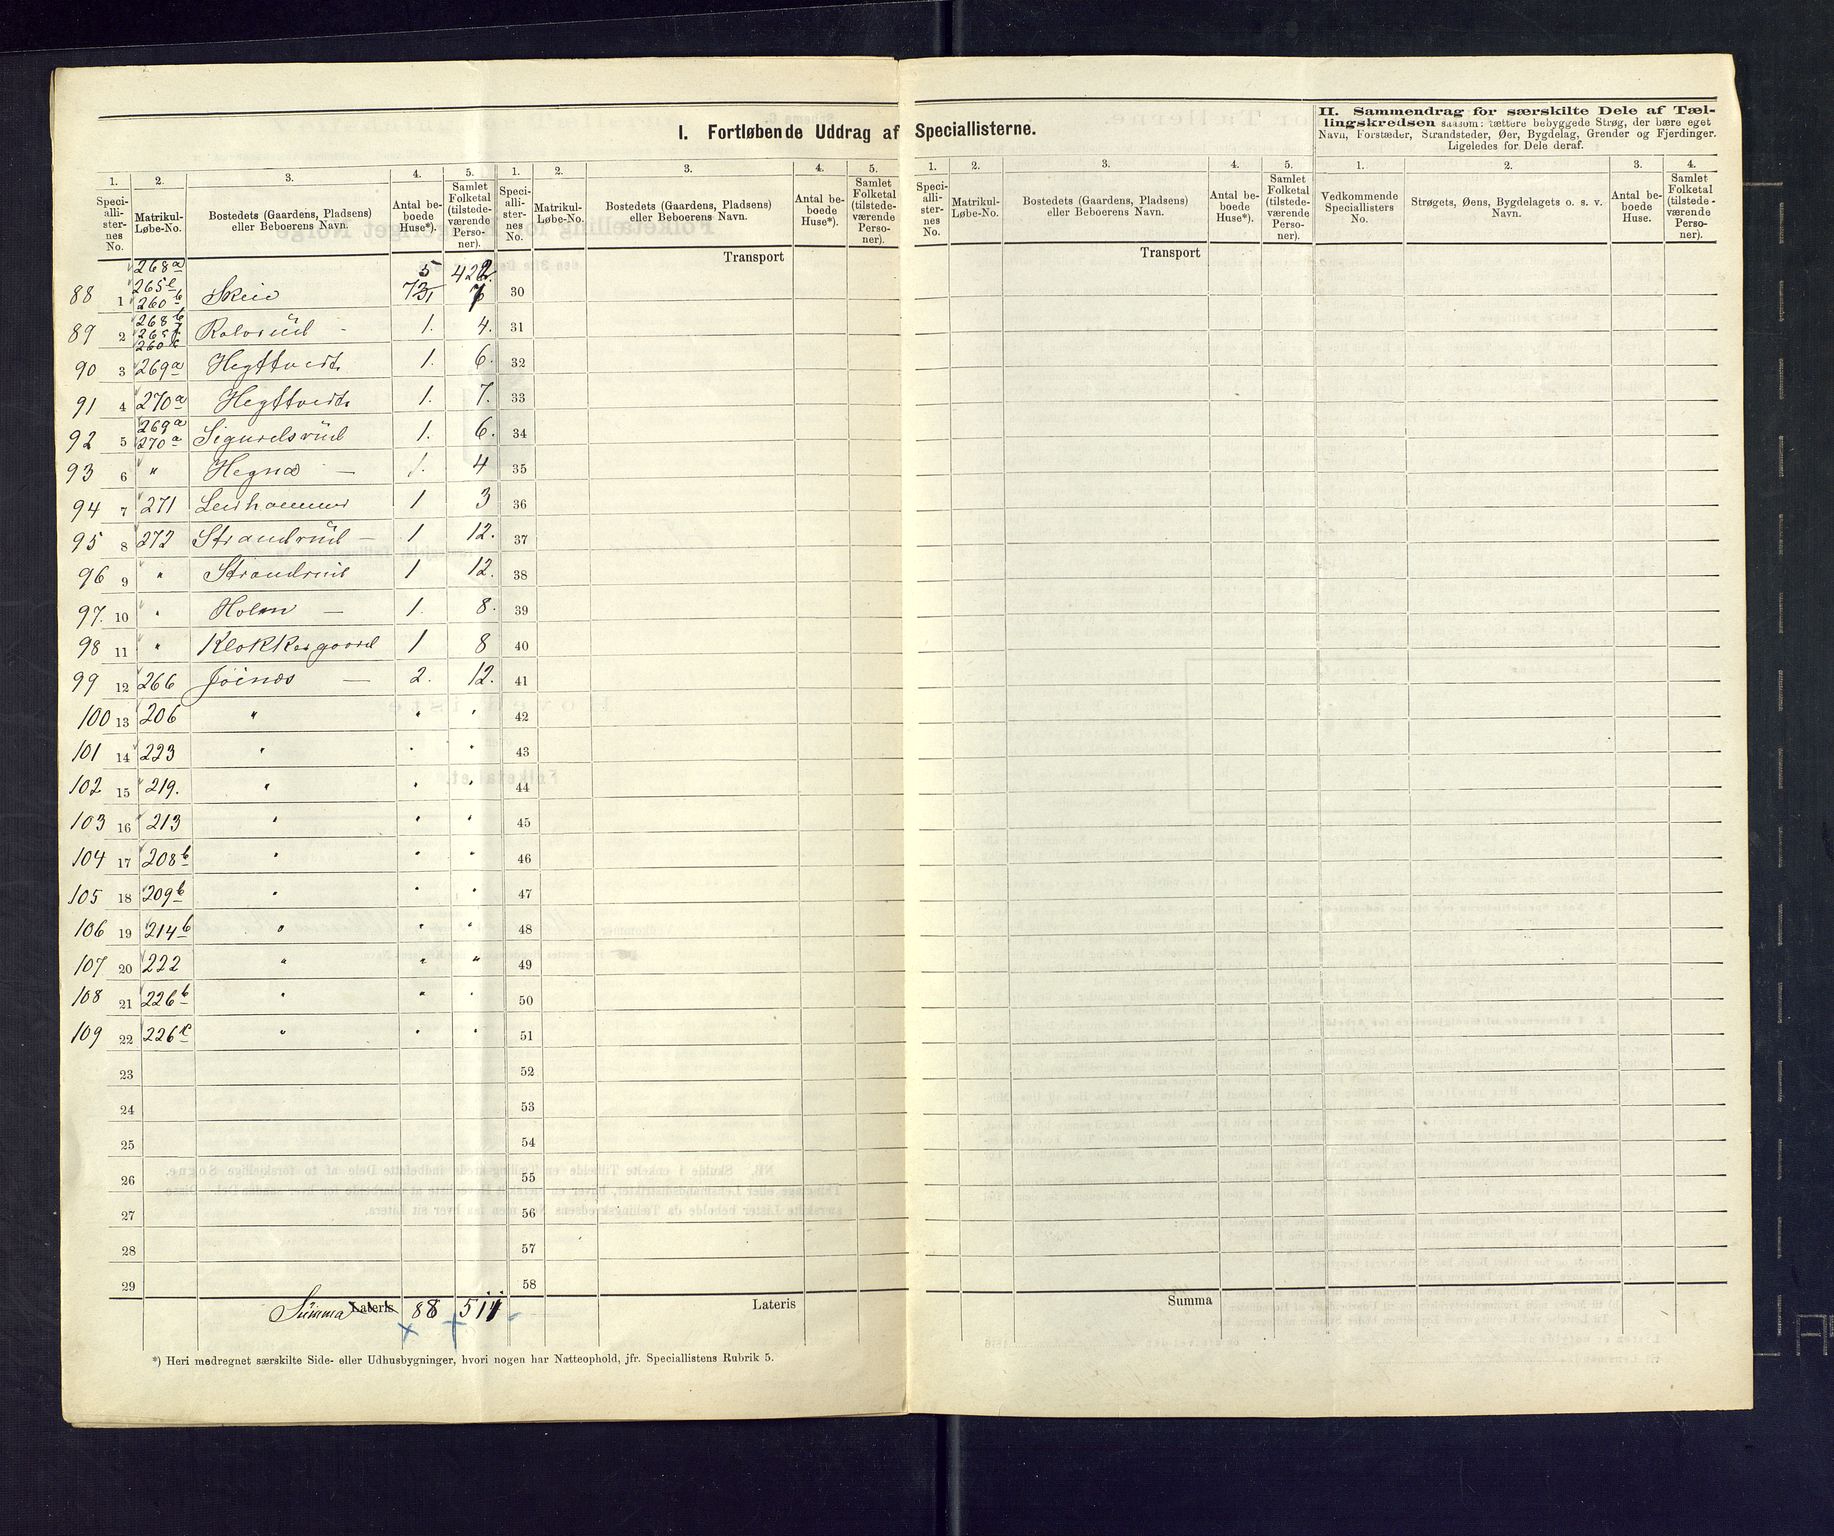 I. Fortløbende Uddrag af Speciallisterne.
II. Sammendrag for særskilte Dele af Tæl-
lingskredsen saasom: tættere bebyggede Strøg, der bære eget
Navn, Forstæder, Strandsteder, Øer, Bygdelag, Grender og Fjerdinger.
Ligeledes for Dele deraf.
1. 2. 3. 4. 5. 1. 2. 3. 4. 5. 1. 2. 3. 4. 5. 1. 2. 3. 4.
Speci-alli-ster-nes No. Matrikul-Løbe-No. Bostedets (Gaardens, Pladsen) eller Beboerens Navn. Antal be-boede Huse*). Samlet Folketal (tilstede-værende Perso-ner).
Speci-alli-ster-nes No. Matrikul-Løbe-No. Bostedets (Gaardens, Pladsen) eller Beboerens Navn. Antal be-boede Huse*). Samlet Folketal (tilstede-værende Perso-ner).
Speci-alli-ster-nes No. Matrikul-Løbe-No. Bostedets (Gaardens, Pladsen) eller Beboerens Navn. Antal be-boede Huse*). Samlet Folketal (tilstede-værende Perso-ner).
Vedkommende Speciallisters No. Strøgets, Øens, Bygdelagets o. s. v. Navn. Antal be-boede Huse. Samlet Folketal (tilstede-værende Perso-ner).
Transport Transport
268a
88 1 265e 260b Skeie 7 30
268b
89 2 265f 260c Rolvsrüd - 1. 4. 31
90 3 269a Hegttvedt 1. 6. 32
91 4 270a Hegttvedt 1. 7. 33
269a
92 5 270a Sigurdsrüd 1. 6. 34
93 6 " Hegna — 1. 4 35
94 7 271 Leerhammer 1 3 36
95 8 272 Strandrüd — 1 12. 37
96 9 " Strandrüd 1 12. 38
97. 10 " Holm — 1. 8. 39
98 11 " Klokkergaard 1 8 40
99 12 266 Jöinæs — 2. 12. 41
100 13 206 " " " 42
101 14 223 " " " 43
102 15 219. " " " 44
103 16 213 " " " 45
104 17 208b " " " 46
105 18 209b " " " 47
106 19 214b " " " 48
107 20 222 " " " 49
108 21 226b " " " 50
109 22 226c " " " 51
23 52
24 53
25 54
26 55
27 56
28 57
29 58
Sümma Lateris 88 511 Lateris Summa
*) Heri medregnet særskilte Side- eller Udhusbygninger, hvori nogen har Natteophold, jfr. Speciallistens Rubrik 5.